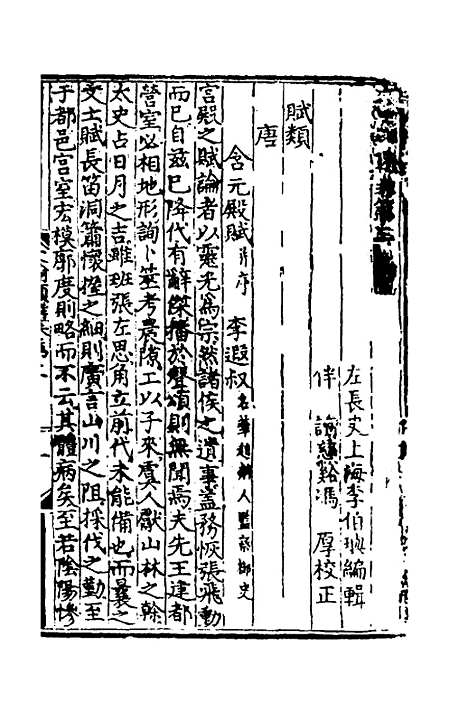 左長史上海李伯璵編輯
伴讀慈谿馮厚校正
賦類
唐
含元殿賦并序 李遐叔名華趙郡人監察御史
宮殿之賦論者以靈光為宗然諸侯之遺事蓋務恢張飛動
而已自兹已降代有辭傑播於聲頌則無聞焉夫先王建都
營室必相地形詢卜筮考農隙工以子來虞人獻山林之榦
太史占日月之吉雖班張左思角立前代未能備也而㬥之
文士賦長笛洞簫懷握之細則廣言山川之阻採伐之勤至
于都邑宮室宏模廓度則略而不云其體病矣至若陰陽慘